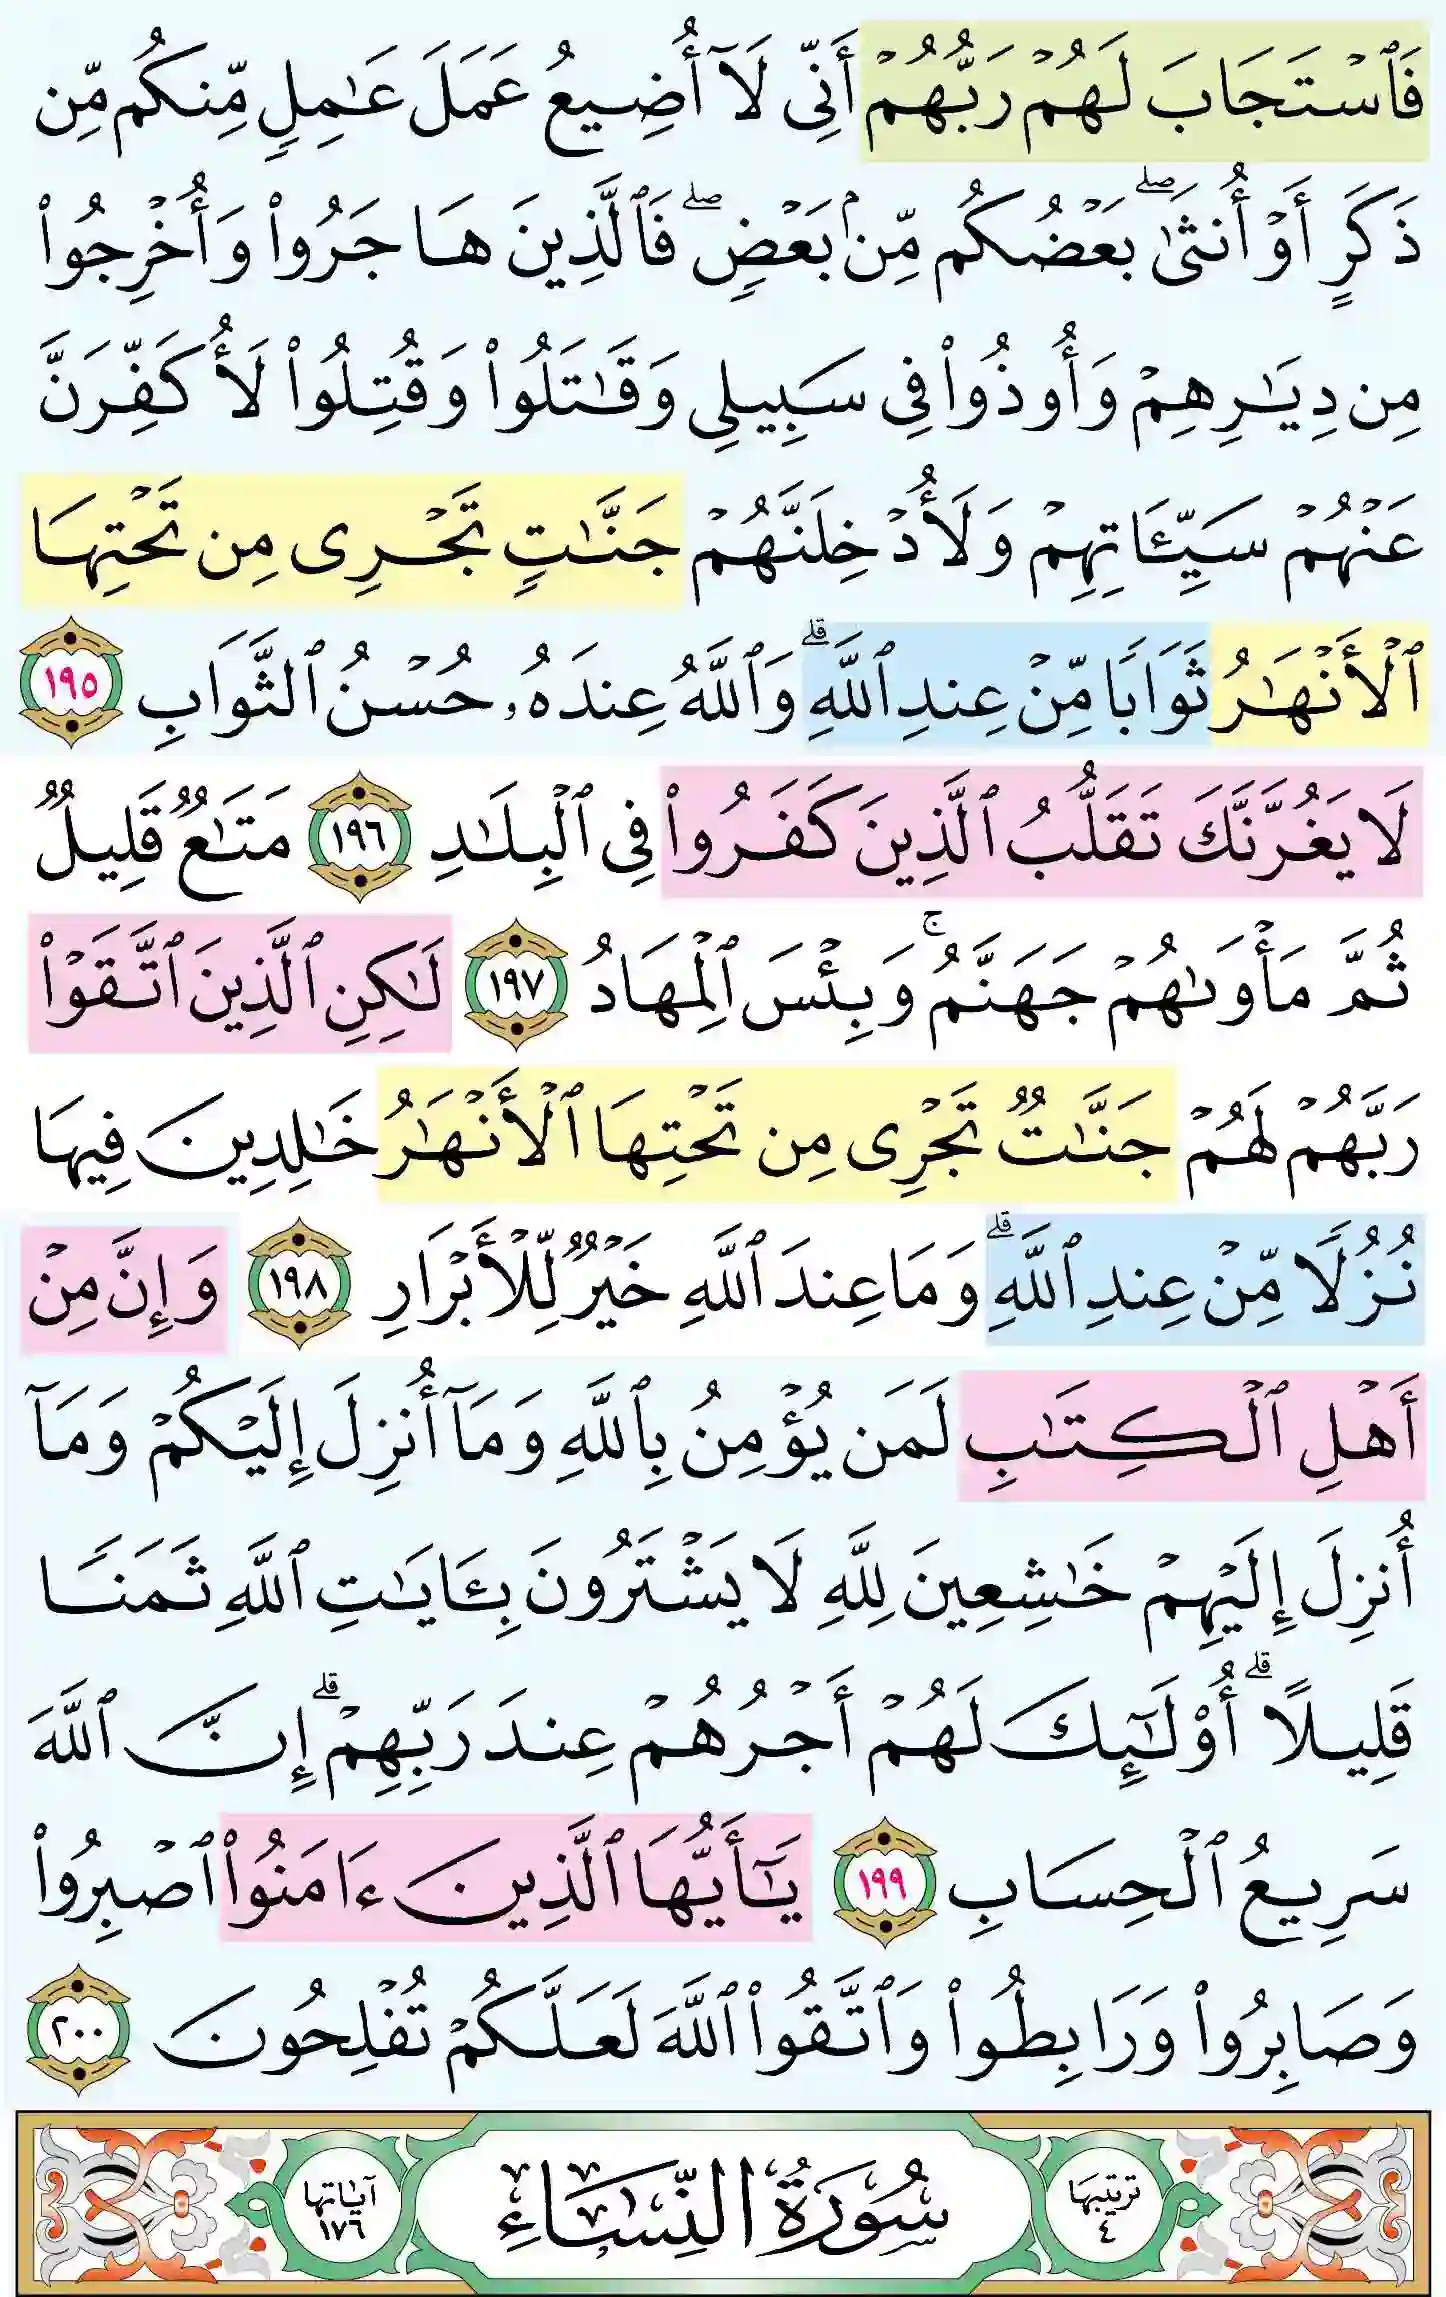 فَٱسْتَجَابَ لَهُمْ رَبُّهُمْ أَنِّى لَآ أُضِيعُ عَمَلَ عَٰمِلٍ مِّنكُم مِّن
ذَكَرٍ أَوْ أُنثَىٰ ۖ بَعْضُكُم مِّنۢ بَعْضٍ ۖ فَٱلَّذِينَ هَاجَرُوا۟ وَأُخْرِجُوا۟
مِن دِيَٰرِهِمْ وَأُوذُوا۟ فِى سَبِيلِى وَقَٰتَلُوا۟ وَقُتِلُوا۟ لَأُكَفِّرَنَّ
عَنْهُمْ سَيِّـَٔاتِهِمْ وَلَأُدْخِلَنَّهُمْ جَنَّٰتٍ تَجْرِى مِن تَحْتِهَا
ٱلْأَنْهَٰرُ ثَوَابًا مِّنْ عِندِ ٱللَّهِ ۗ وَٱللَّهُ عِندَهُۥ حُسْنُ ٱلثَّوَابِ ١٩٥
لَا يَغُرَّنَّكَ تَقَلُّبُ ٱلَّذِينَ كَفَرُوا۟ فِى ٱلْبِلَٰدِ ١٩٦ مَتَٰعٌ قَلِيلٌ
ثُمَّ مَأْوَىٰهُمْ جَهَنَّمُ ۚ وَبِئْسَ ٱلْمِهَادُ ١٩٧ لَٰكِنِ ٱلَّذِينَ ٱتَّقَوْا۟
رَبَّهُمْ لَهُمْ جَنَّٰتٌ تَجْرِى مِن تَحْتِهَا ٱلْأَنْهَٰرُ خَٰلِدِينَ فِيهَا
نُزُلًا مِّنْ عِندِ ٱللَّهِ ۗ وَمَا عِندَ ٱللَّهِ خَيْرٌ لِّلْأَبْرَارِ ١٩٨ وَإِنَّ مِنْ
أَهْلِ ٱلْكِتَٰبِ لَمَن يُؤْمِنُ بِٱللَّهِ وَمَآ أُنزِلَ إِلَيْكُمْ وَمَآ
أُنزِلَ إِلَيْهِمْ خَٰشِعِينَ لِلَّهِ لَا يَشْتَرُونَ بِـَٔايَٰتِ ٱللَّهِ ثَمَنًا
قَلِيلًا ۗ أُو۟لَٰٓئِكَ لَهُمْ أَجْرُهُمْ عِندَ رَبِّهِمْ ۗ إِنَّ ٱللَّهَ
سَرِيعُ ٱلْحِسَابِ ١٩٩ يَٰٓأَيُّهَا ٱلَّذِينَ ءَامَنُوا۟ ٱصْبِرُوا۟
وَصَابِرُوا۟ وَرَابِطُوا۟ وَٱتَّقُوا۟ ٱللَّهَ لَعَلَّكُمْ تُفْلِحُونَ ٢٠٠
ترتيبها
٤
سُورَةُ النِّسَاءِ
آياتها
١٧٦